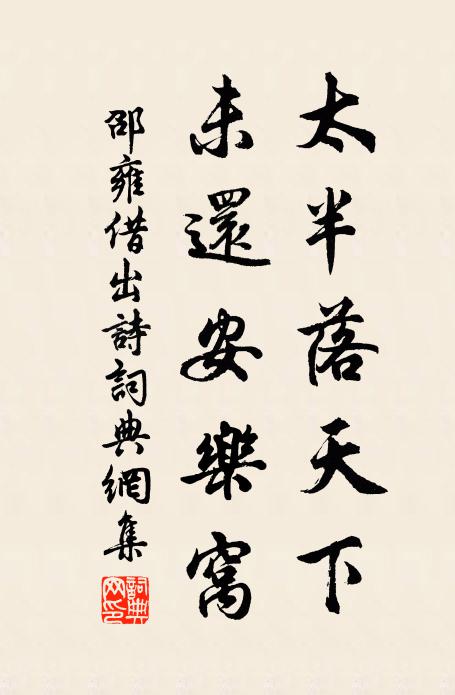 太半落天下
未還安樂窩
邵雍借出詩詞典網集
詞典网印